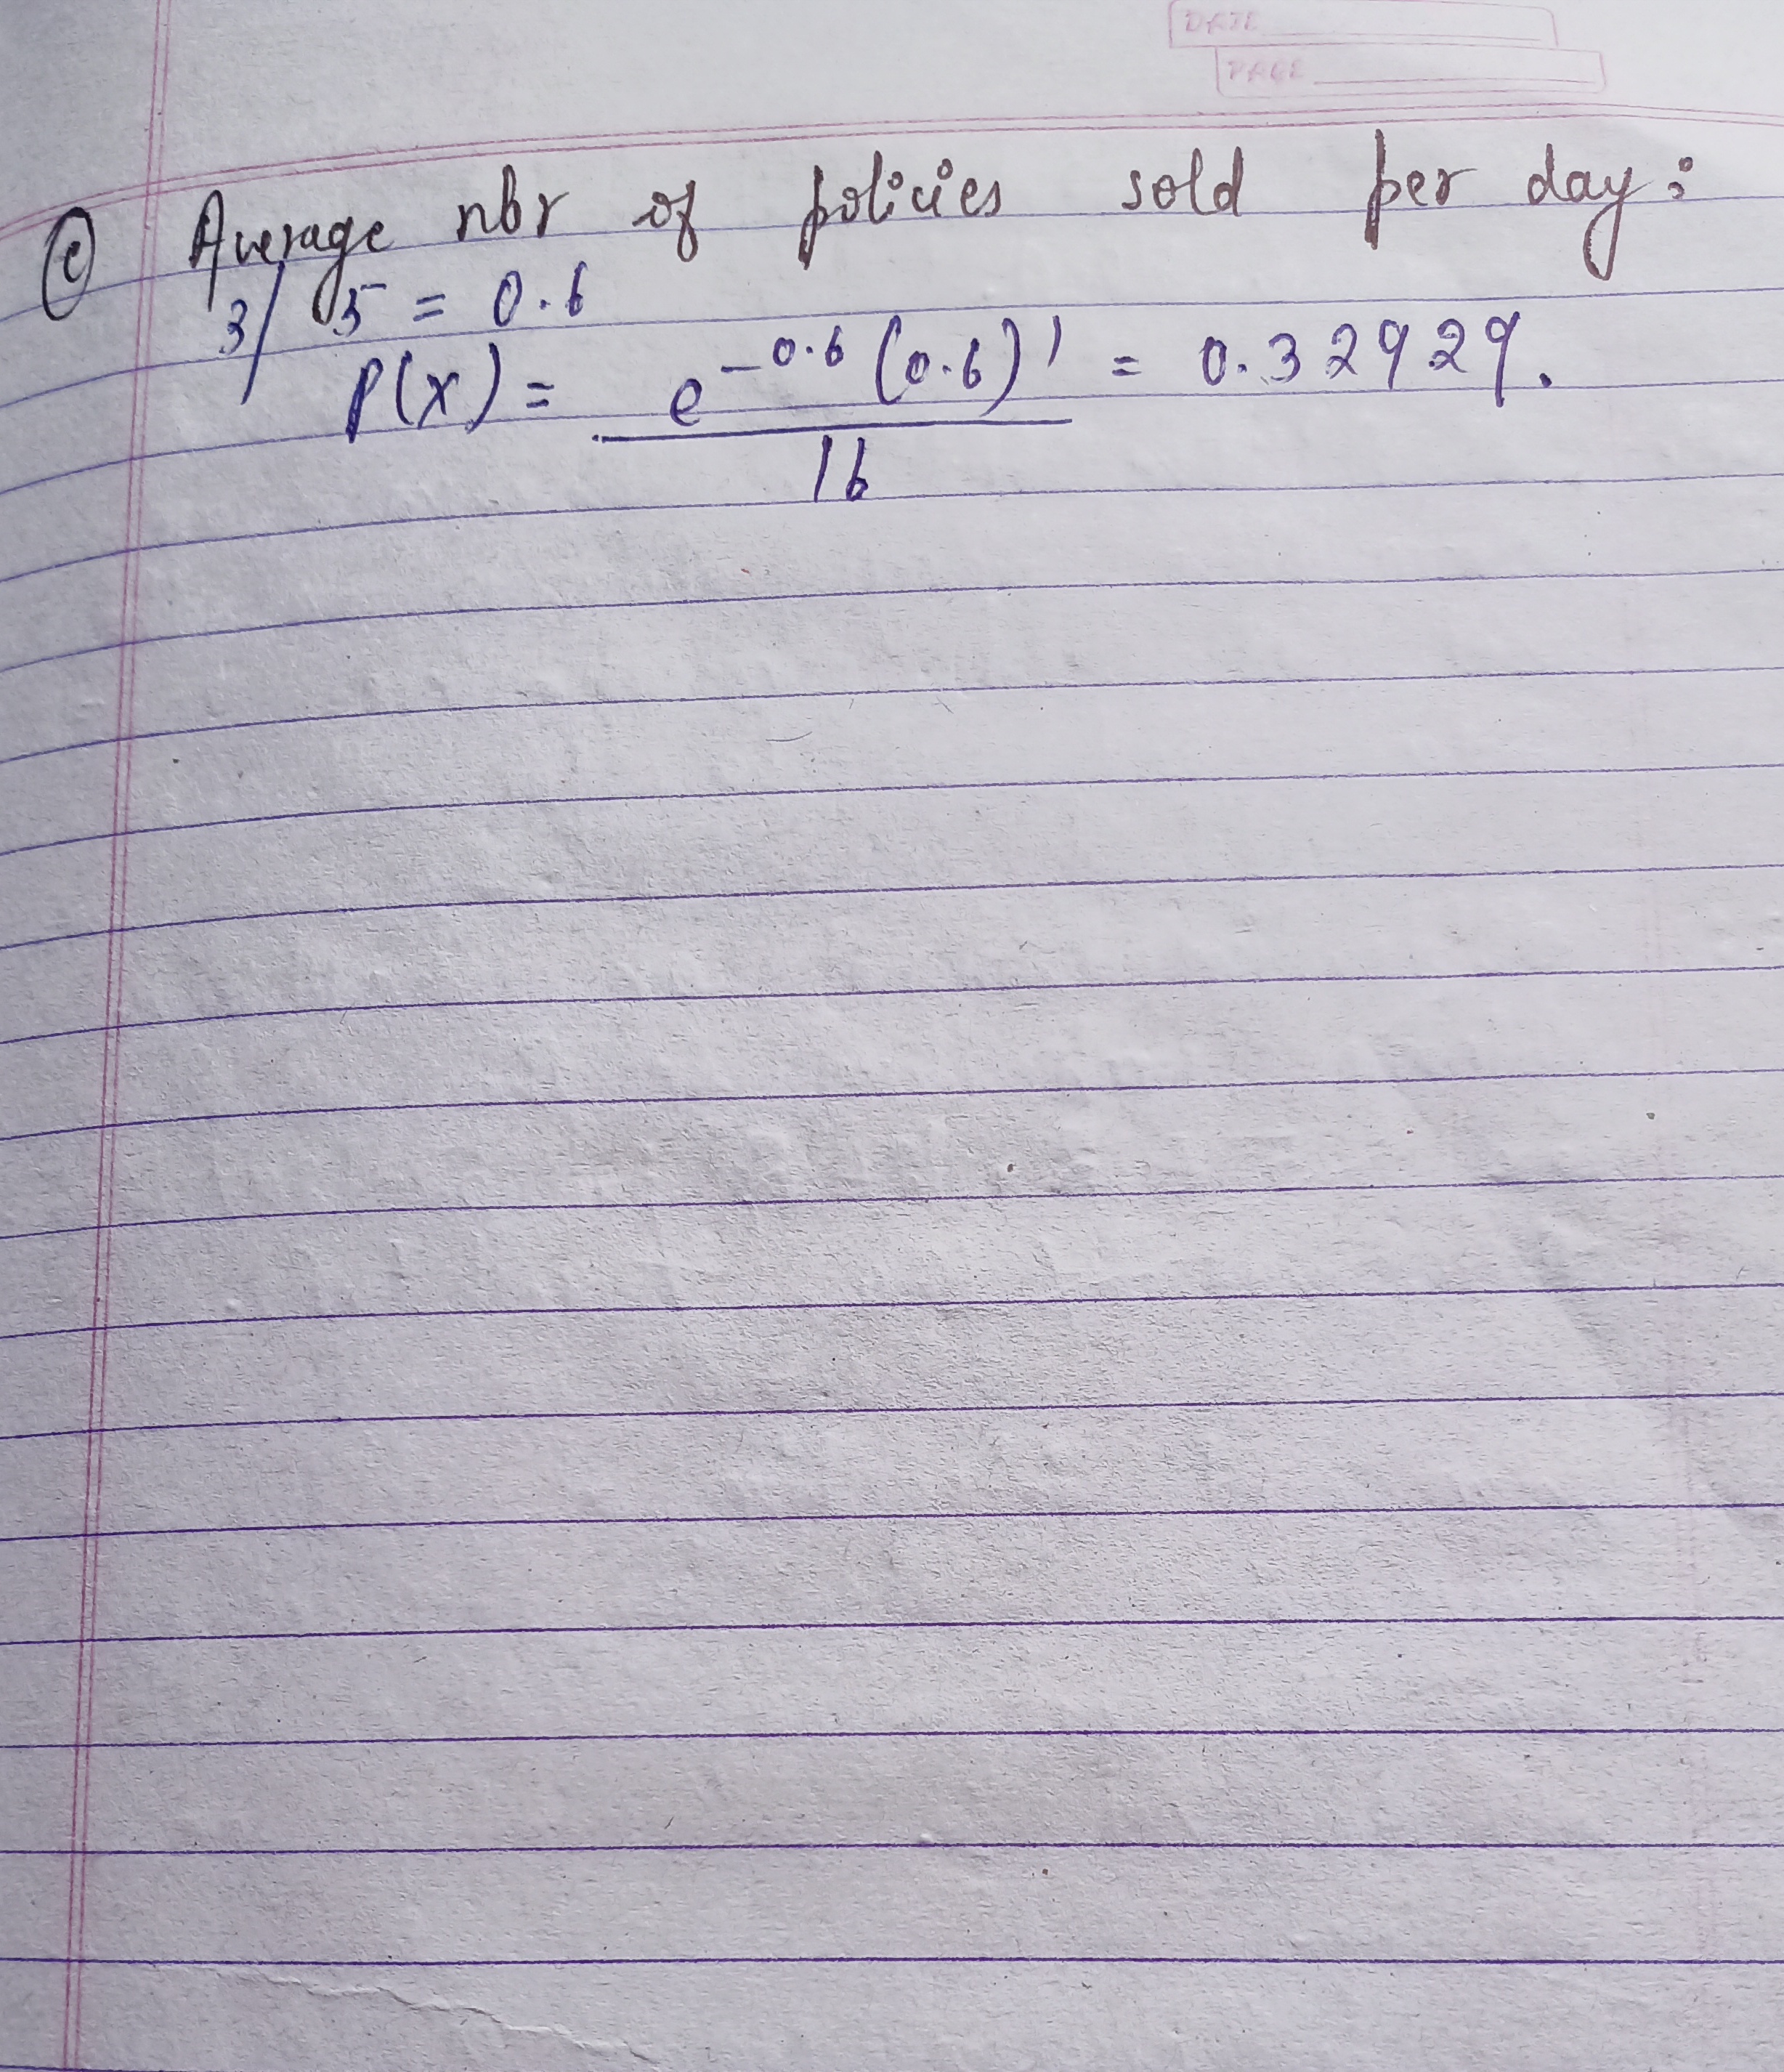 DATE
PAGE
(c) Average nbr of policies sold per day:
3/5 = 0.6
P(x) = e^-0.6 (0.6)^1 / 16 = 0.32929.